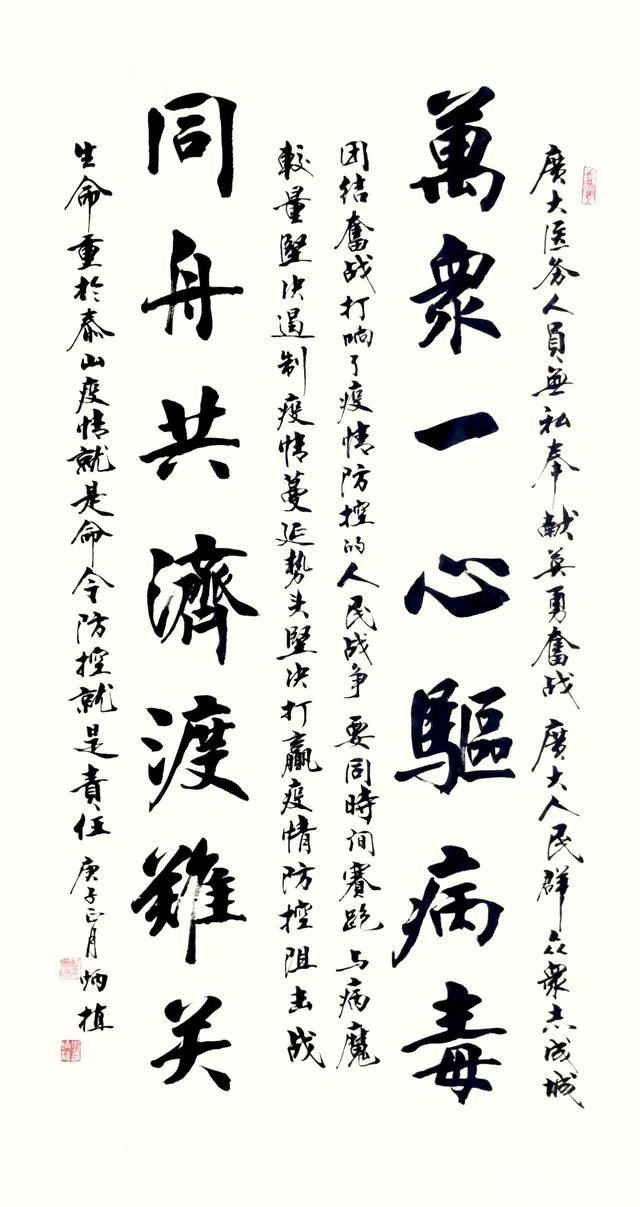 廣大医务人員無私奉献英勇奮战 廣大人民群众衆志成城
萬衆一心驅病毒
团结奮战打响了疫情防控的人民战争 要同時间賽跑 与病魔
較量堅决遏制疫情蔓延勢头堅决打贏疫情防控阻击战
同舟共濟渡難关
生命重於泰山疫情就是命令防控就是責任 庚子正月 炳植